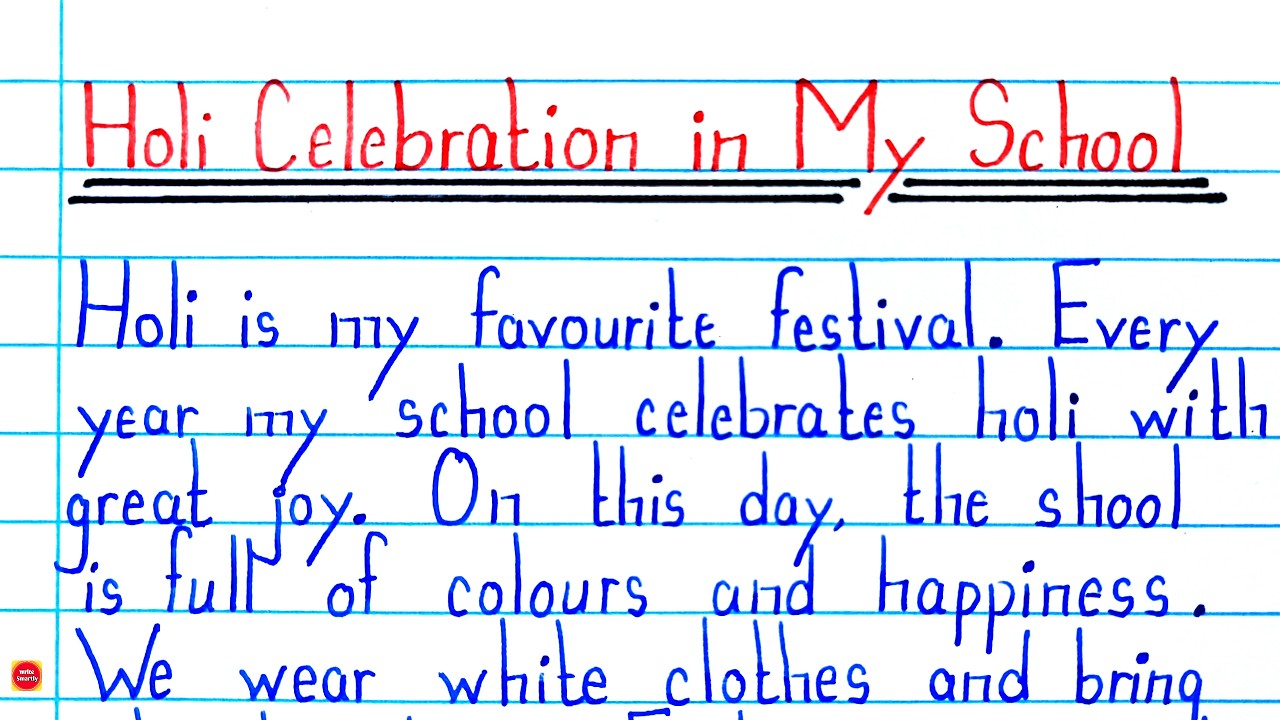 Holi Celebration in My School
Holi is my favourite festival. Every
year my school celebrates holi with
great joy. On this day, the shool
is full of colours and happiness.
We wear white clothes and bring
write
Smartly